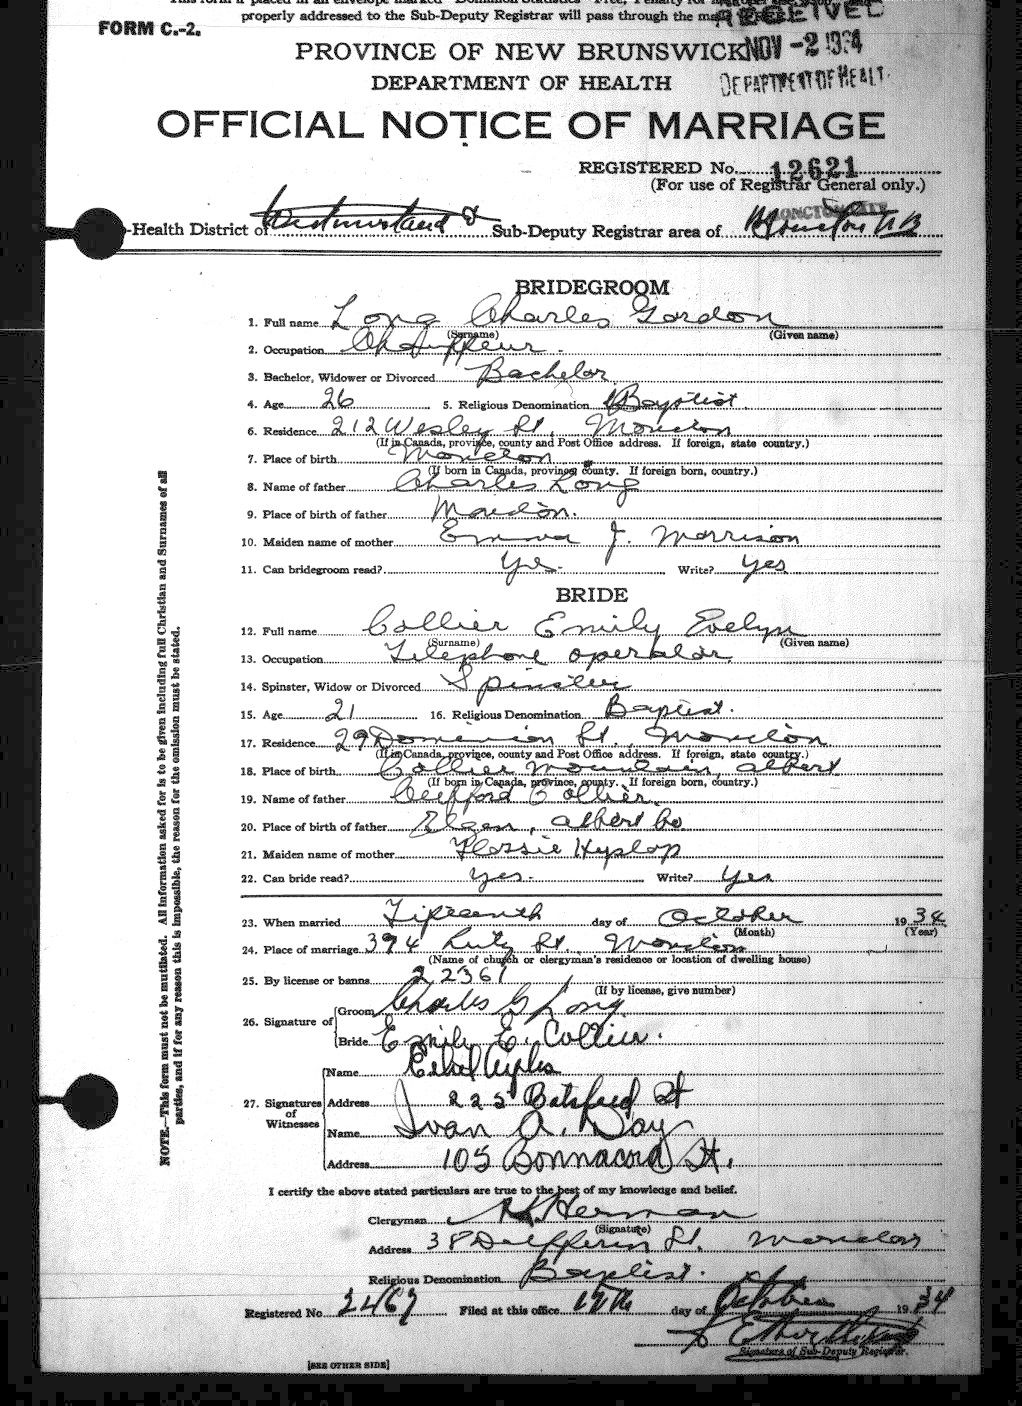 properly addressed to the Sub-Deputy Registrar will pass through the
RECEIVED
FORM C.-2.
PROVINCE OF NEW BRUNSWICK
NOV -2 1934
DEPARTMENT OF HEALTH
DEPARTMENT OF HEALT
OFFICIAL NOTICE OF MARRIAGE
REGISTERED No. 12621
(For use of Registrar General only.)
-Health District of Westmorland Sub-Deputy Registrar area of Moncton N B
BRIDEGROOM
1. Full name Long Charles Gordon
(Surname) (Given name)
2. Occupation Chauffeur
3. Bachelor, Widower or Divorced Bachelor
4. Age 26 5. Religious Denomination Baptist.
6. Residence 212 Wesley St, Moncton
(If in Canada, province, county and Post Office address. If foreign, state country.)
7. Place of birth Moncton
(If born in Canada, province, county. If foreign born, country.)
8. Name of father Charles Long
9. Place of birth of father Moncton.
10. Maiden name of mother Emma J. Morrison
11. Can bridegroom read? Yes Write? Yes
BRIDE
12. Full name Collier Emily Evelyn
(Surname) (Given name)
13. Occupation Telephone operator
14. Spinster, Widow or Divorced Spinster
15. Age 21 16. Religious Denomination Baptist.
17. Residence 29 Dominion St., Moncton
(If in Canada, province, county and Post Office address. If foreign, state country.)
18. Place of birth Collier Mountain, Albert
(If born in Canada, province, county. If foreign born, country.)
19. Name of father Clifford Collier.
20. Place of birth of father Elgin, Albert Co
21. Maiden name of mother Flossie Hyslop
22. Can bride read? Yes Write? Yes
23. When married Fifteenth day of October 1934
(Month) (Year)
24. Place of marriage 394 Lutz St., Moncton
(Name of church or clergyman's residence or location of dwelling house)
25. By license or banns 22361
(If by license, give number)
26. Signature of Groom Charles G Long
Bride Emily E. Collier.
27. Signatures of Witnesses
Name Ethel
Address 225 Botsford St
Name Ivan A. Day
Address 105 Bonnacord St.
I certify the above stated particulars are true to the best of my knowledge and belief.
Clergyman Herman
(Signature)
Address 38 Dufferin St. Moncton
Religious Denomination Baptist.
Registered No 2467 Filed at this office 17th day of October 1934
Signature of Sub-Deputy Registrar.
[SEE OTHER SIDE]
NOTE.—This form must not be mutilated. All information asked for is to be given including full Christian and Surnames of all
parties, and if for any reason this is impossible, the reason for the omission must be stated.